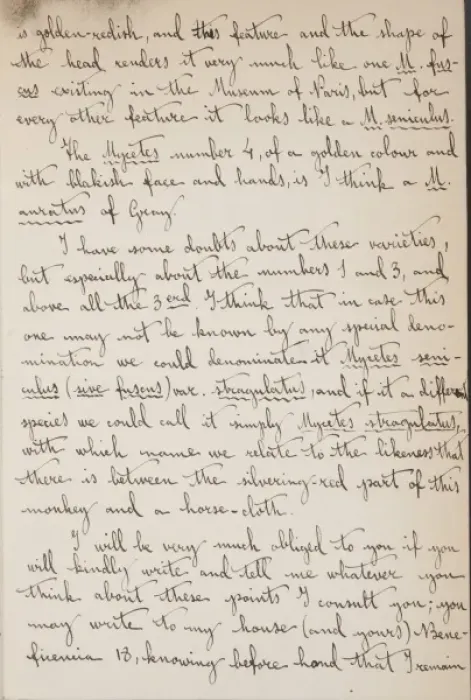 is golden-redish, and this feature and the shape of
the head renders it very much like one M. fus-
cus existing in the Museum of Paris, but for
every other feature it looks like a M. seniculus.
The Mycetes number 4, of a golden colour and
with blakish face and hands, is I think a M.
auratus of Gray.
I have some doubts about these varieties,
but especially about the numbers 1 and 3, and
above all the 3erd I think that in case this
one may not be known by any special deno-
mination we could denominate it Mycetes seni-
culus (sive fuscus) var. stragulatus, and if it a different
species we could call it simply Mycetes stragulatus,
with which name we relate to the likeness that
there is between the silvering-red part of this
monkey and a horse-cloth.
I will be very much obliged to you if you
will kindly write and tell me whatever you
think about these points I consult you; you
may write to my house (and yours) Bene-
ficencia 13, knowing before hand that I remain